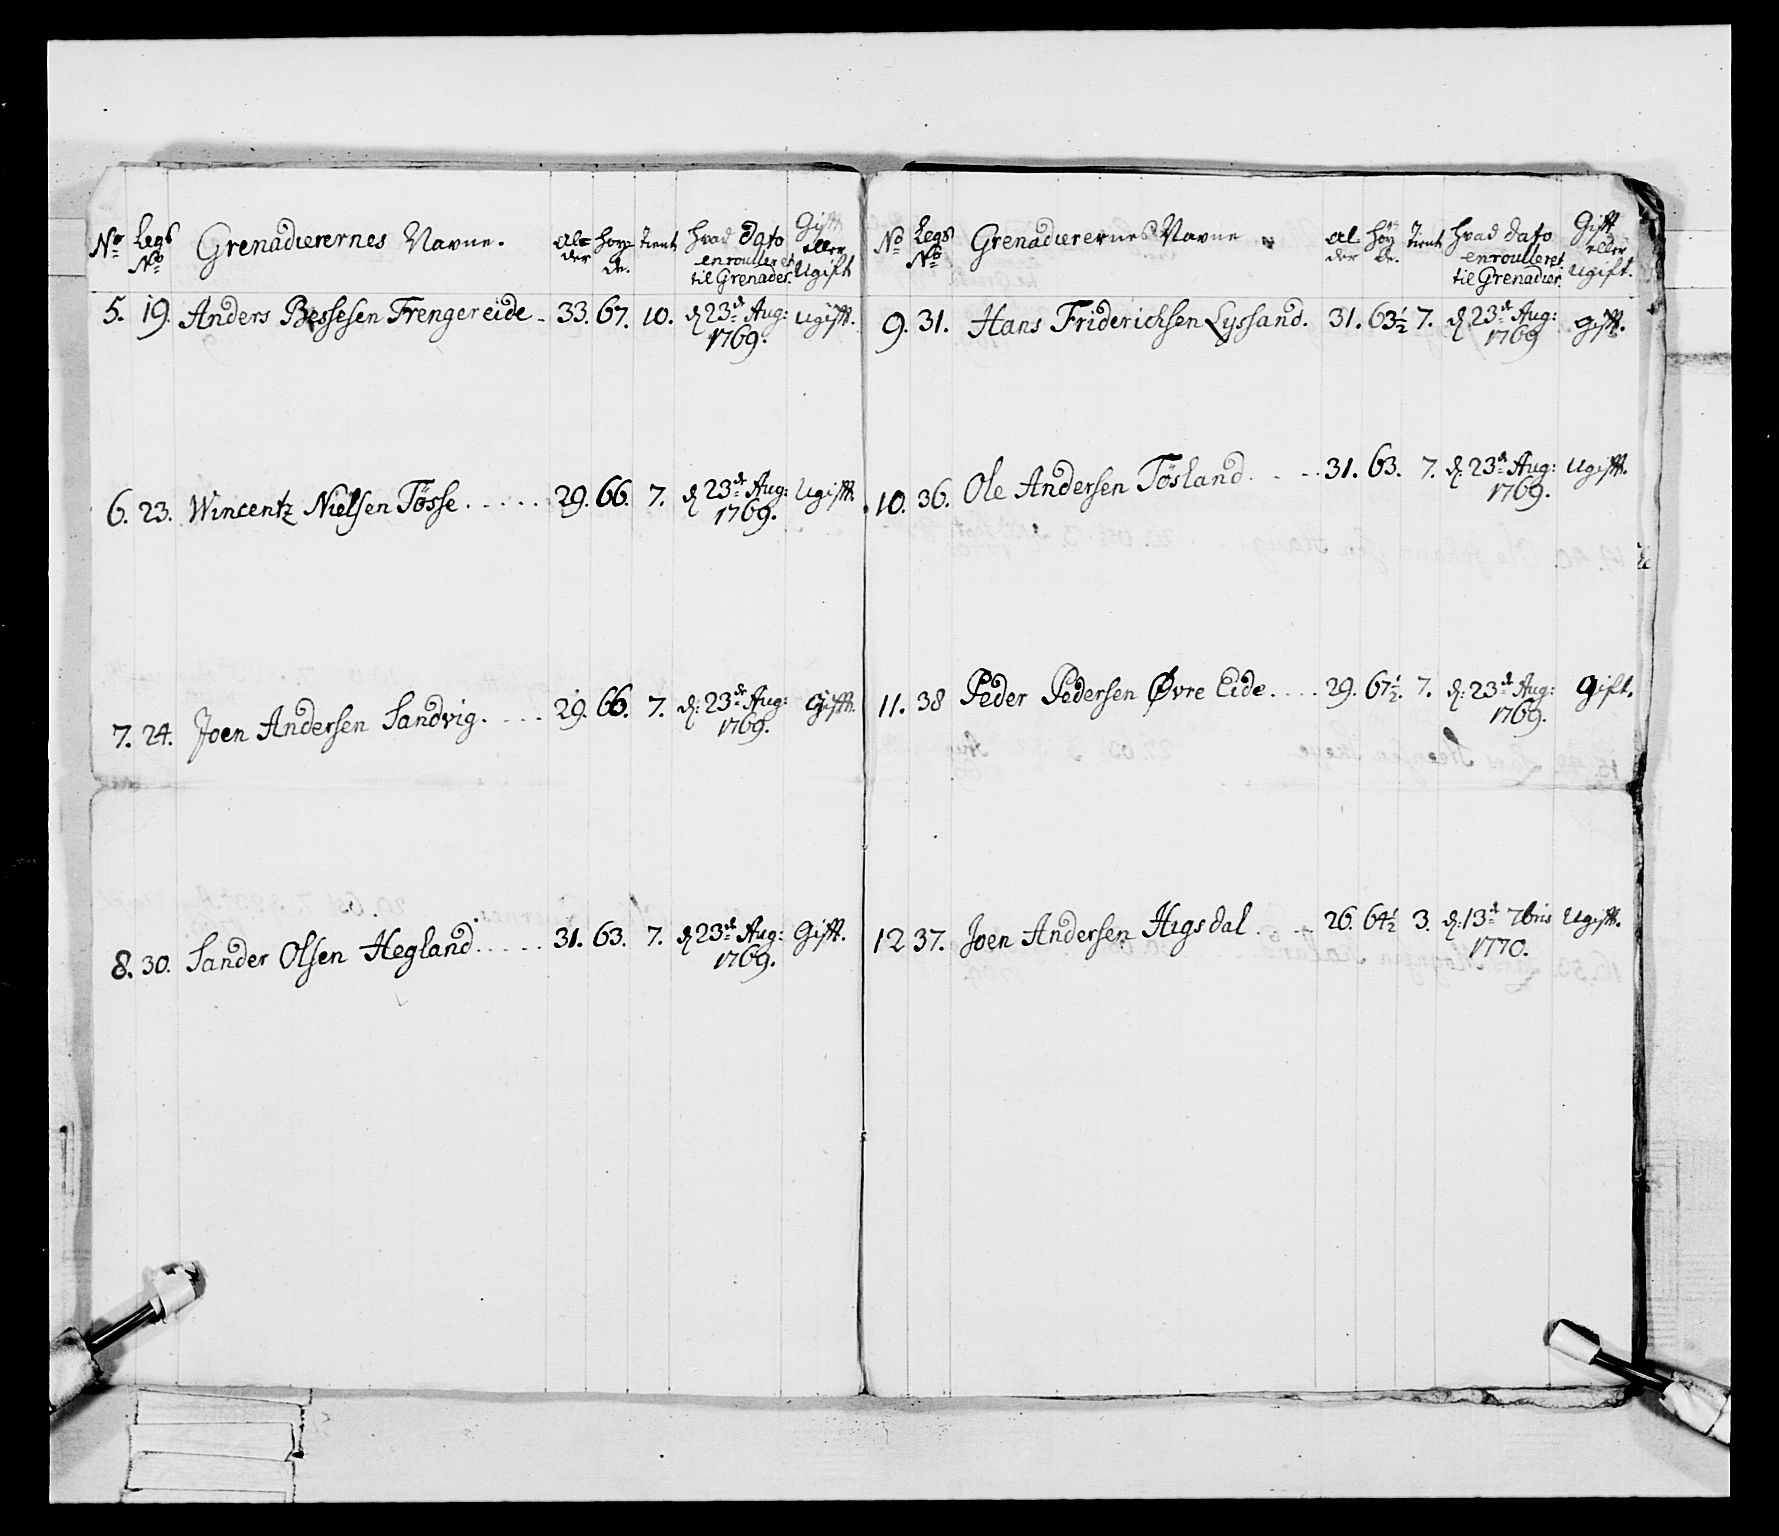 No Legs No Grenadierernes Navne. Al= der Høy= de. Tient Hvad Dato enroulleret til Grenader. Gift eller Ugift
5. 19. Anders Bessesen Frengereide. 33. 67. 10. d 23de Aug: 1769. Ugift.
6. 23. Wincentz Nielsen Tösse. . . . . . 29. 66. 7. d 23de Aug: 1769. Ugift.
7. 24. Joen Andersen Sandvig. . . . . 29. 66. 7. d: 23de Aug: 1769. Gift.
8. 30. Sander Olsen Hegland. . . . . . 31. 63. 7. d 23de Aug: 1769. Gift.
No Legs No Grenadierernes Navne Al der Høy de. Tient Hvad Dato enroulleret til Grenadier. Gift eller Ugift.
9. 31. Hans Friderichsen Lyssand. 31. 63½ 7. d 23de Aug: 1769 Gift.
10. 36. Ole Andersen Tösland. . . . 31. 63. 7. d. 23de Aug: 1769. Ugift.
11. 38 Peder Pedersen Øvre Eide. . . . 29. 67½. 7. d: 23de Aug: 1769. Gift.
12 37. Joen Andersen Higsdal . . . 26. 64½ 3. d: 13de 7bris 1770. Ugift.